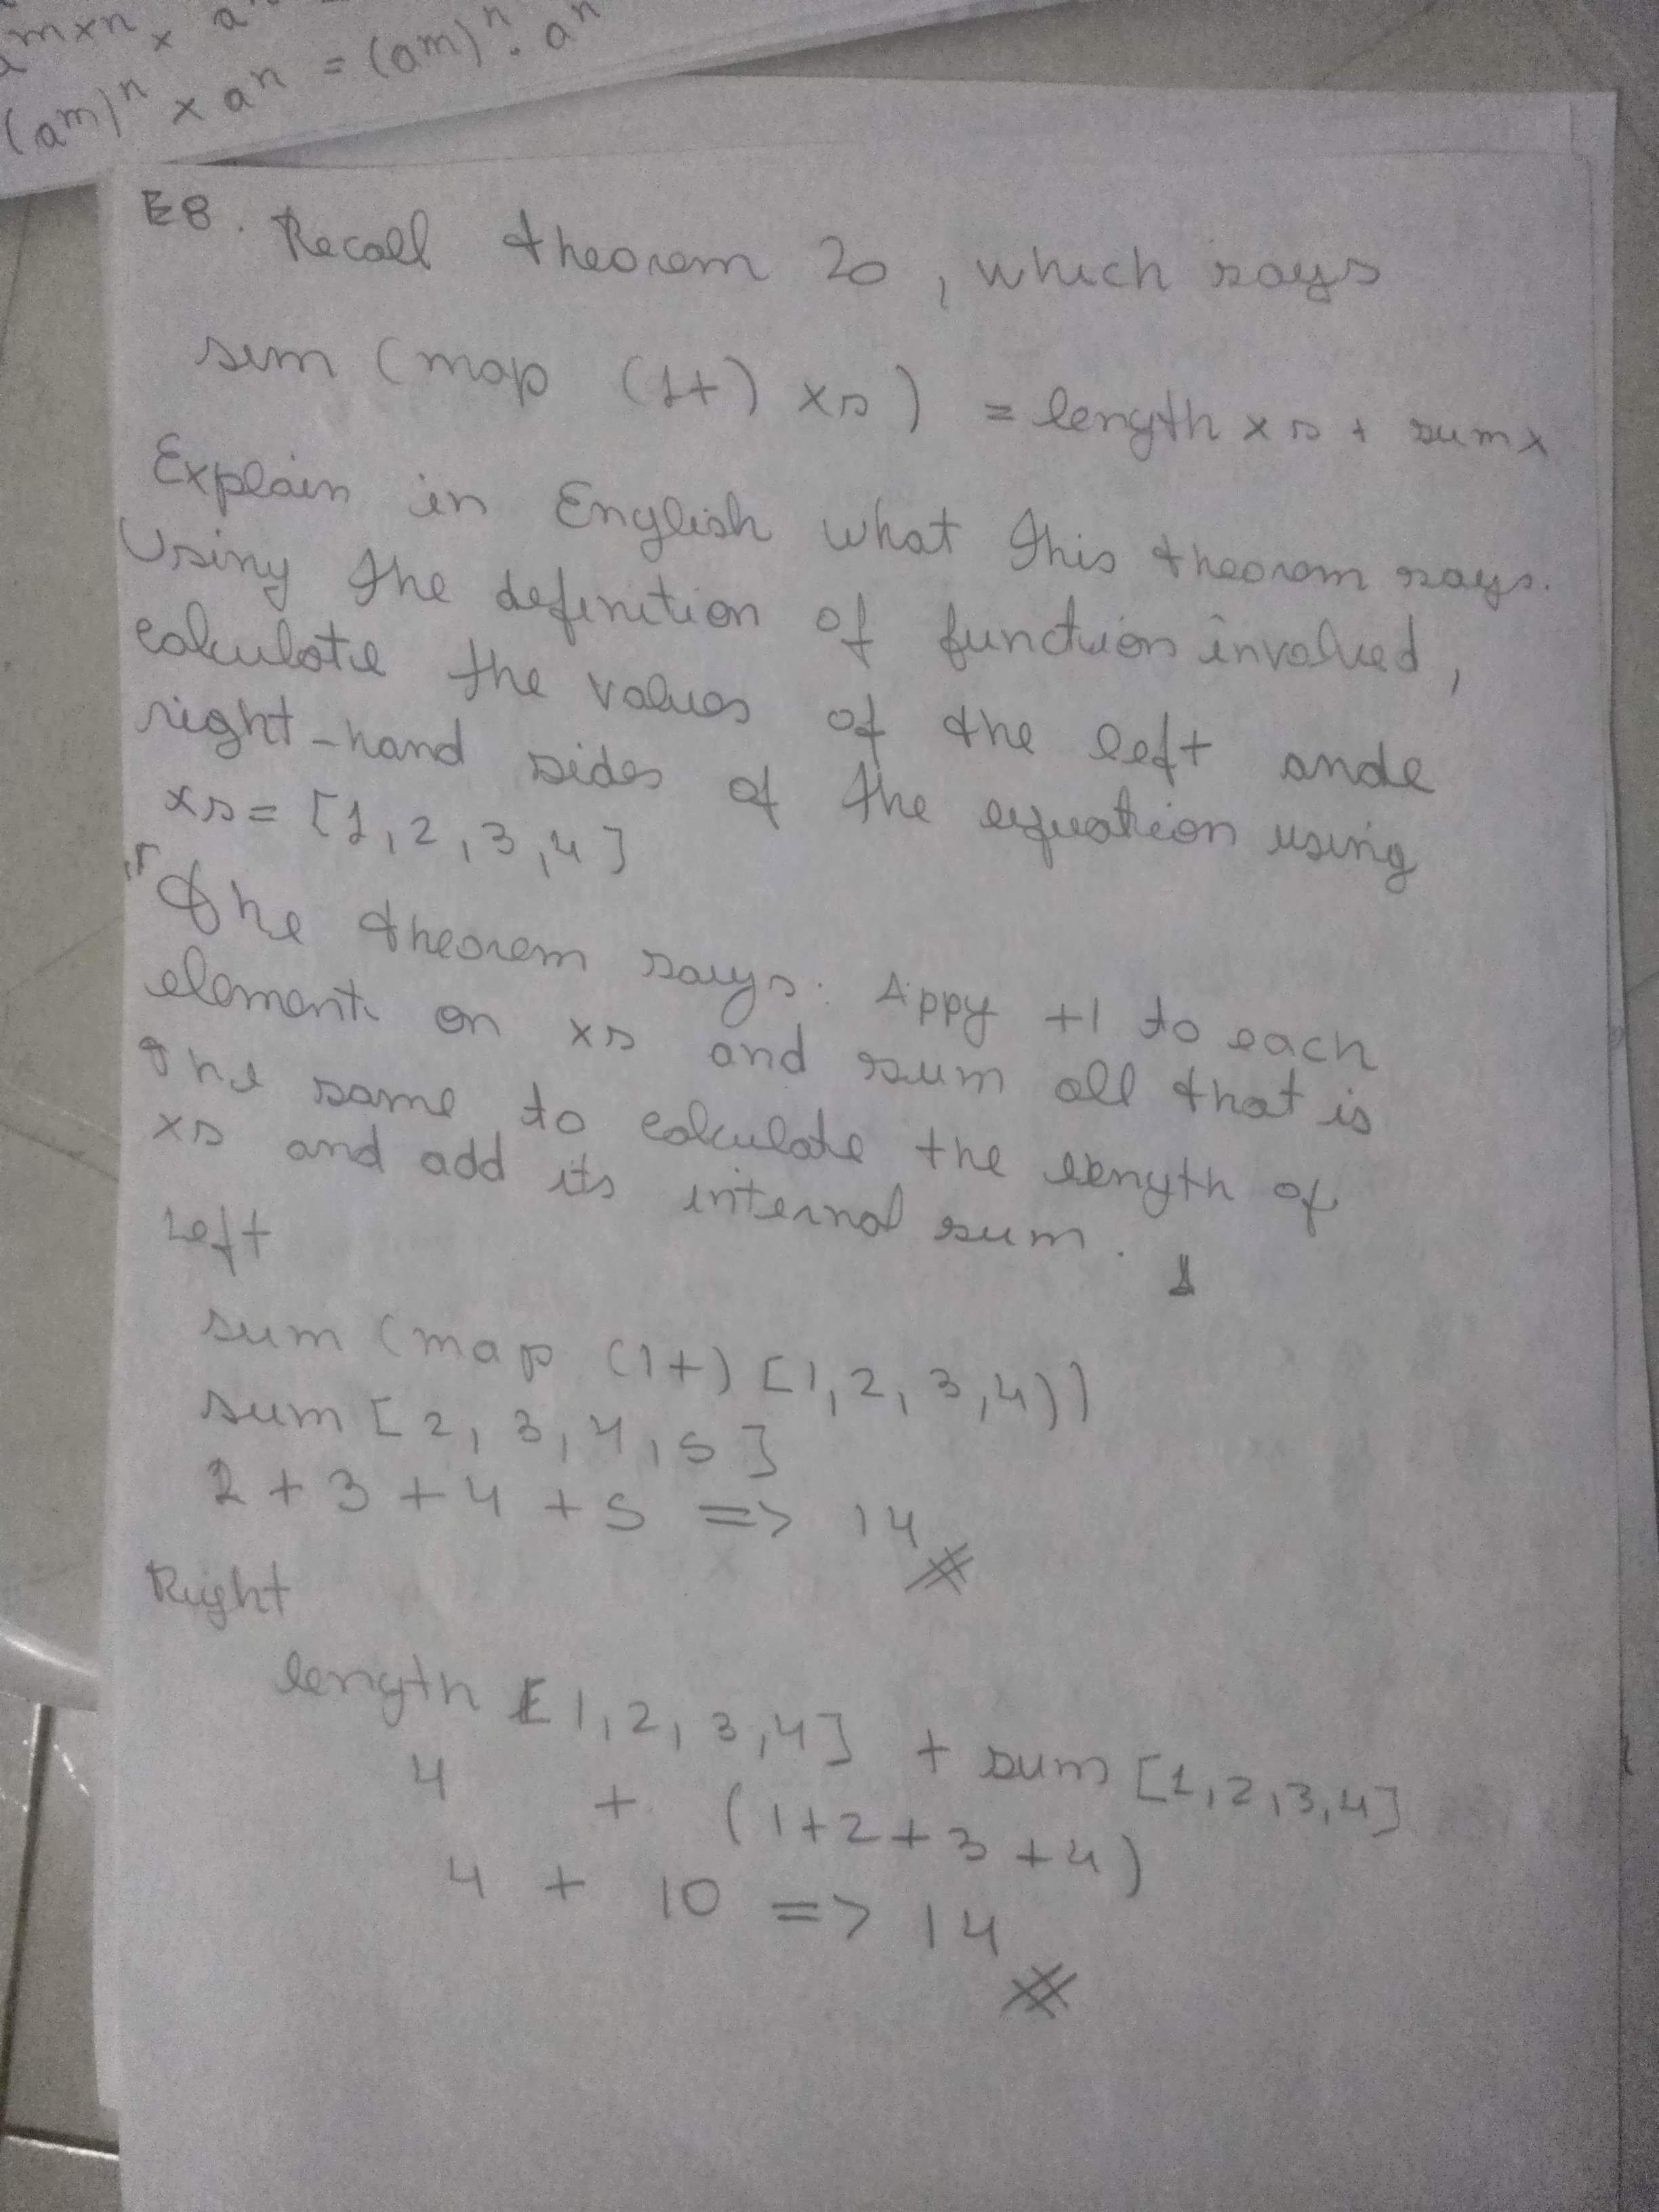 (aᵐ)ⁿ × aⁿ = (aᵐ)ⁿ · aⁿ
E8. Recall theorem 20, which says
sum (map (1+) xs) = length xs + sum x
Explain in English what this theorem says.
Using the definition of function involved,
calculate the values of the left ande
right-hand sides of the equation using
xs = [1,2,3,4]
The theorem says. Appy +1 to each
element on xs and sum all that is
the same to calculate the length of
xs and add its internal sum.
Left
sum (map (1+) [1,2,3,4))
sum [2,3,4,5]
2 + 3 + 4 + 5 => 14
Right
length [1,2,3,4] + sum [1,2,3,4]
4 + (1+2+3+4)
4 + 10 => 14